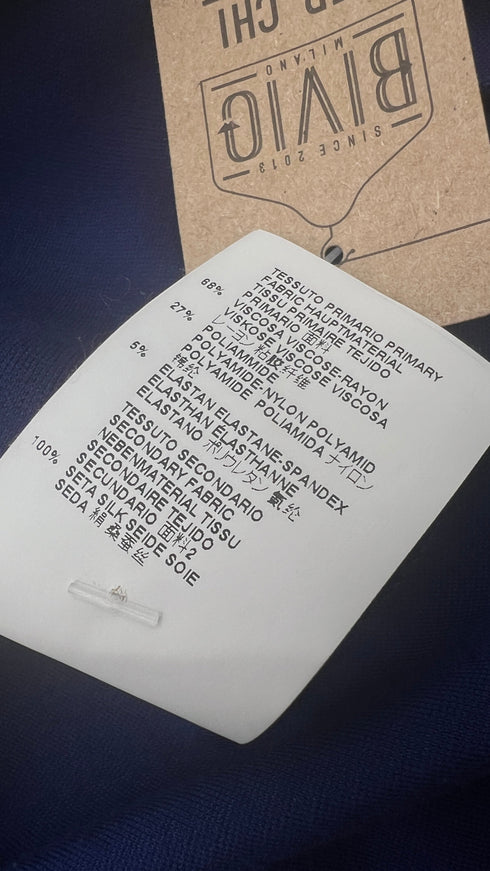 ER CHI
BIVIO
MILANO
SINCE 2013
TESSUTO PRIMARIO PRIMARY
FABRIC HAUPTMATERIAL
TISSU PRIMAIRE TEJIDO
PRIMARIO 面料
68% VISCOSA VISCOSE-RAYON
VISKOSE VISCOSE VISCOSA
レーヨン 粘胶纤维
27% POLIAMMIDE
POLYAMIDE-NYLON POLYAMID
POLYAMIDE POLIAMIDA ナイロン
锦纶
5% ELASTAN ELASTANE-SPANDEX
ELASTHAN ÉLASTHANNE
ELASTANO ポリウレタン 氨纶
TESSUTO SECONDARIO
SECONDARY FABRIC
NEBENMATERIAL TISSU
SECONDAIRE TEJIDO
SECUNDARIO 面料2
100% SETA SILK SEIDE SOIE
SEDA 絹 桑蚕丝